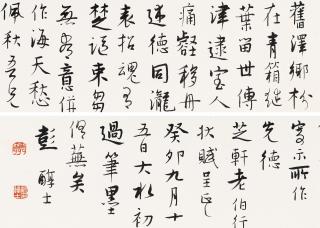 舊澤鄉枌
在青箱繼
葉留世傳
津逮宝人
痛壑移舟
述德同瀧
表招魂有
楚謳束芻
無多意併
作海天愁
佩秋吾兄
寄示所作
先德
芝軒老伯行
狀賦呈正
癸卯九月十
五日大水初
過筆墨
俱蕪矣
彭醇士